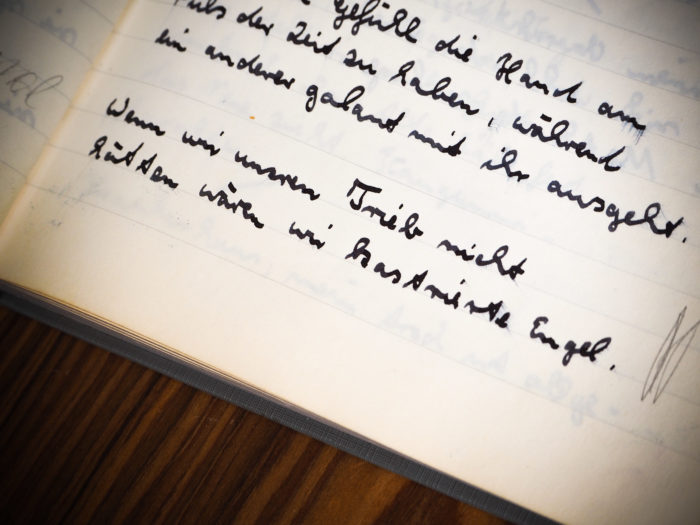 Gefühl die Hand am
Puls der Zeit zu haben, während
ein anderer galant mit ihr ausgeht.
Wenn wir unseren Trieb nicht
hätten wären wir kastrierte Engel.